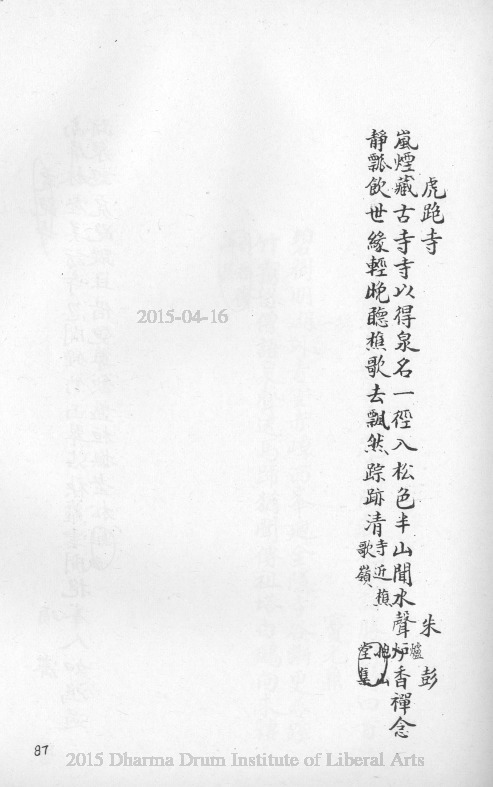 虎跑寺
朱彭
嵐煙藏古寺寺以得泉名一徑入松色半山聞水聲炉香禪念
爐
靜瓢飲世緣輕晚聽樵歌去飄然踪跡清
寺近樵
歌嶺
抱山
堂集
2015-04-16
87
2015 Dharma Drum Institute of Liberal Arts